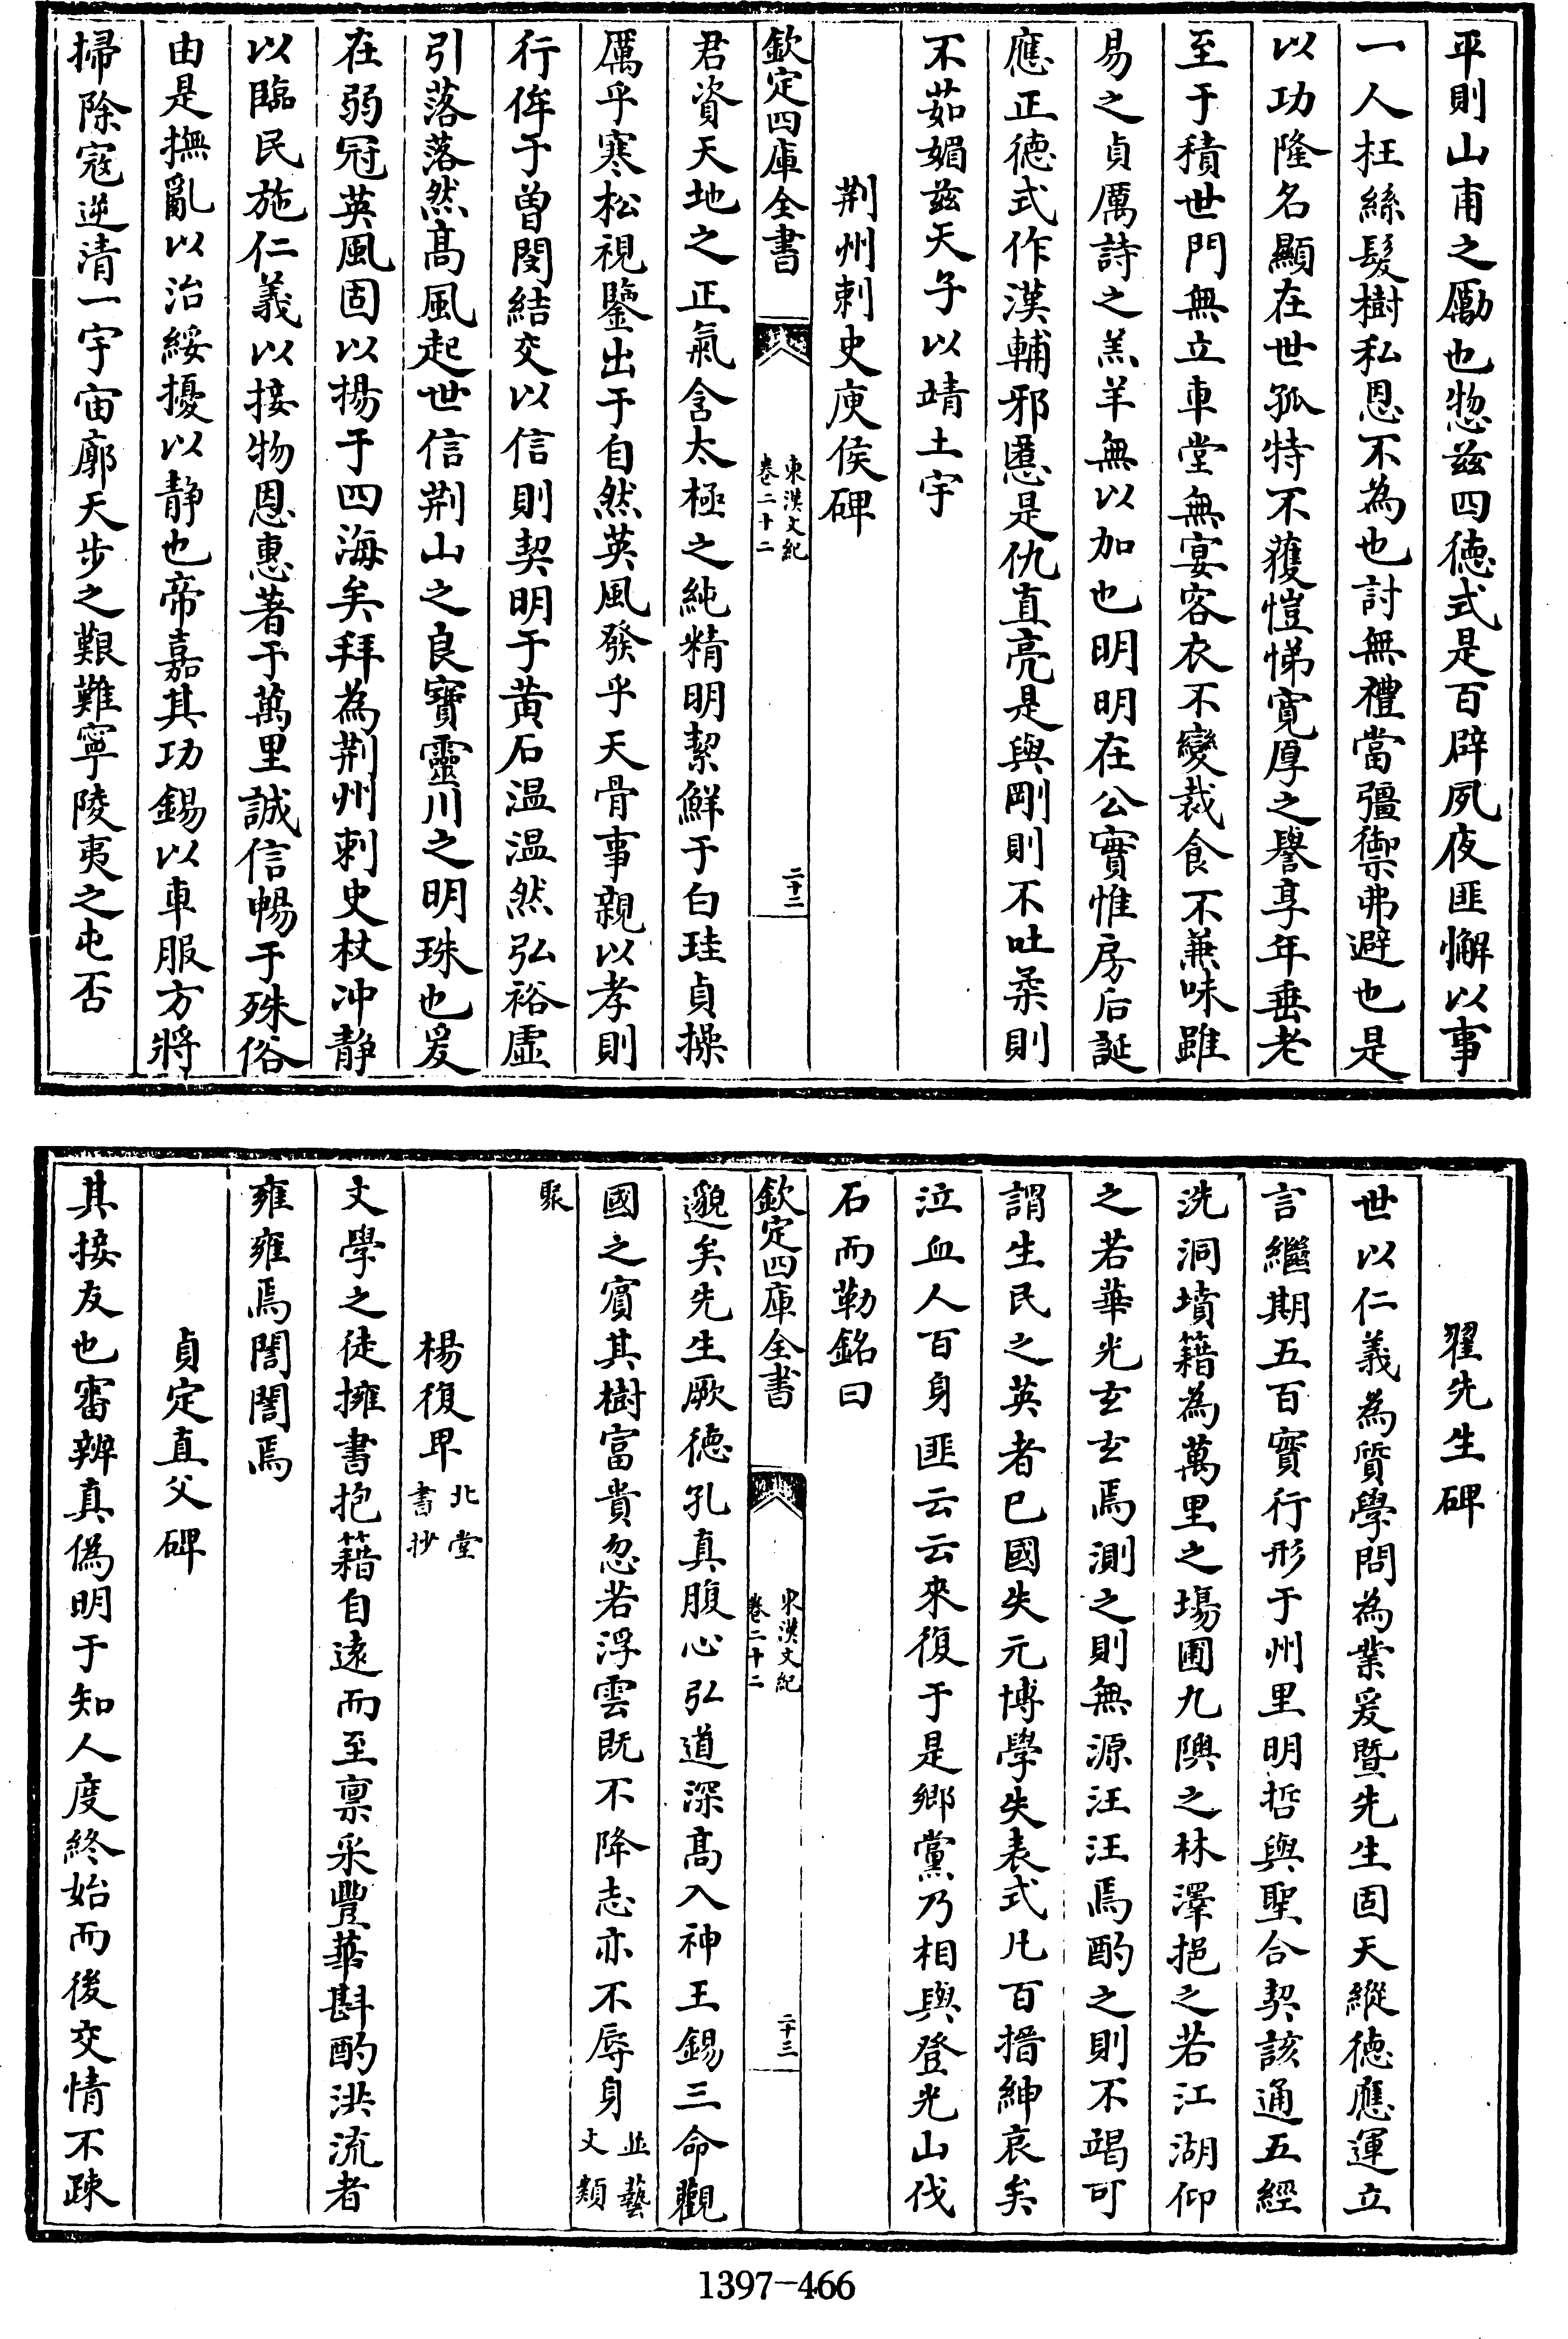 平則山甫之勵也惣兹四徳式是百辟夙夜匪懈以事
一人枉絲髮樹私恩不為也討無禮當彊禦弗避也是
以功隆名顯在世孤特不獲愷悌寛厚之譽享年垂老
至于積世門無立車堂無宴客衣不變裁食不兼味雖
易之貞厲詩之羔羊無以加也明明在公實惟房后誕
應正徳式作漢輔邪慝是仇直亮是與剛則不吐柔則
不茹媚兹天子以靖土宇
荆州刺史庾侯碑
欽定四庫全書
東漢文紀
卷二十二
二十二
君資天地之正氣含太極之純精明絜鮮于白珪貞操
厲乎寒松視鑒出于自然英風發乎天骨事親以孝則
行侔于曽閔結交以信則契明于黄石温温然弘裕虚
引落落然髙風起世信荆山之良寶靈川之明珠也爰
在弱冠英風固以揚于四海矣拜為荆州刺史杖冲静
以臨民施仁義以接物恩惠著于萬里誠信暢于殊俗
由是撫亂以治綏擾以静也帝嘉其功錫以車服方將
掃除寇逆清一宇宙廓天步之艱難寧陵夷之屯否
翟先生碑
世以仁義為質學問為業爰暨先生固天縱徳應運立
言繼期五百實行形于州里明哲與聖合契該通五經
洗洞墳籍為萬里之塲圃九隩之林澤挹之若江湖仰
之若華光玄玄焉測之則無源汪汪焉酌之則不竭可
謂生民之英者已國失元博學失表式凡百搢紳哀矣
泣血人百身匪云云來復于是鄉黨乃相與登光山伐
石而勒銘曰
欽定四庫全書
東漢文紀
卷二十二
二十三
邈矣先生厥徳孔真腹心弘道深髙入神王錫三命觀
國之賓其樹富貴忽若浮雲既不降志亦不辱身並藝文類
聚
楊復畀北堂書抄
文學之徒擁書抱籍自逺而至禀采豐華斟酌洪流者
雍雍焉誾誾焉
貞定直父碑
其接友也審辨真偽明于知人度終始而後交情不疎
1397-466